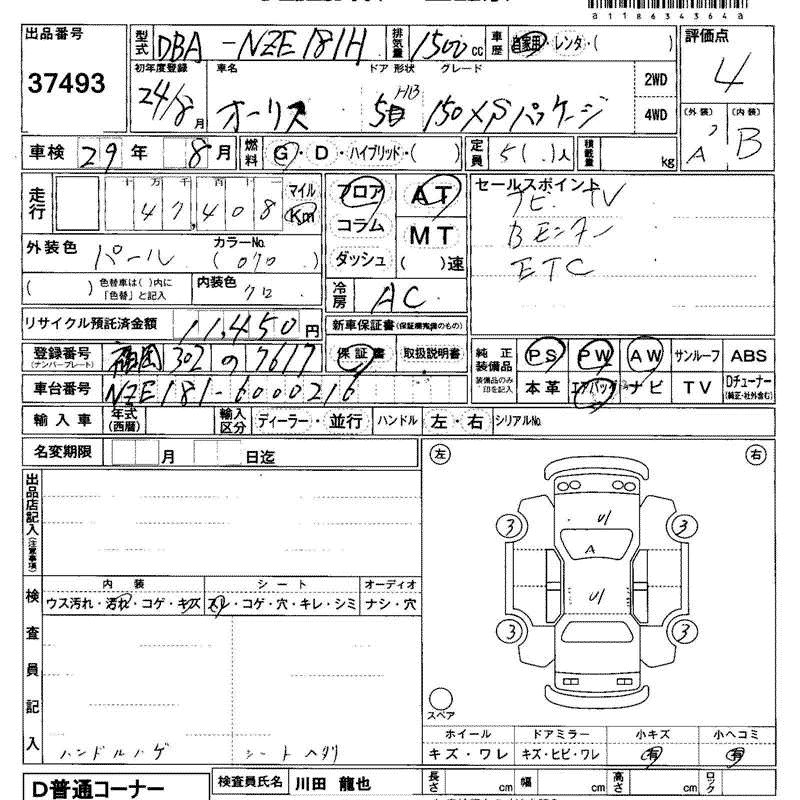 a118634364a
出品番号 型式 DBA-NZE181H 排気量 1500cc 車歴 自家用・レンタ・( ) 評価点
37493 4
初年度登録 車名 ドア 形状 グレード 2WD
24/8月 オーリス 5 HB 150X Sパッケージ 4WD
(外装) (内装)
A' B
車検 29年 8月 燃料 G・D・ハイブリッド・( ) 定員 5( )人 積載量 kg
走行 十万千百十一 マイル フロア AT セールスポイント
47,408 Km ナビ TV
コラム MT Bモニター
外装色 パール カラーNo. (070) ダッシュ ( )速 ETC
( ) 色替車は( )内に「色替」と記入 内装色 クロ 冷房 AC
リサイクル預託済金額 11,450円 新車保証書(保証欄完備のもの)
登録番号(ナンバープレート) 福岡 302 の 7617 保証書 取扱説明書 純正装備品 PS PW AW サンルーフ ABS
車台番号 NZE181-6000216 装備品のみ印を記入 本革 エアバッグ ナビ TV Dチューナー(純正・社外含む)
輸入車 年式(西暦) 輸入区分 ディーラー・並行 ハンドル 左・右 シリアルNo.
名変期限 月 日迄 左 右
出品店記入(注意事項)
U1
3 3
A
U1
検査員記入 内装 シート オーディオ
ウス汚れ・汚れ・コゲ・キズ スレ・コゲ・穴・キレ・シミ ナシ・穴
3 3
スペア
ホイール ドアミラー 小キズ 小ヘコミ
ハンドルハゲ シートヘタリ キズ・ワレ キズ・ヒビ・ワレ 有 有
D普通コーナー 検査員氏名 川田 龍也 長さ cm 幅 cm 高さ cm ロック